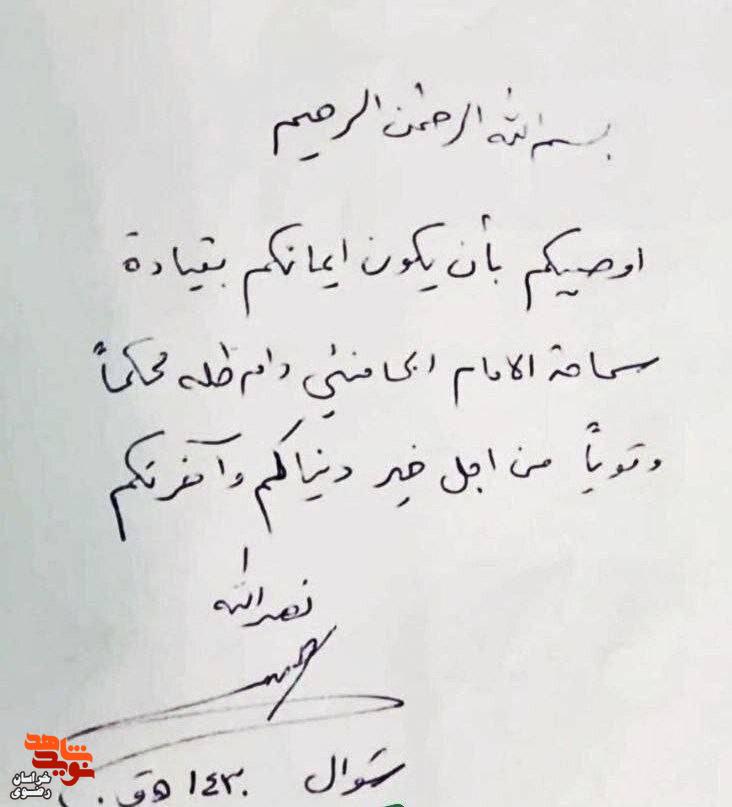 بسم الله الرحمن الرحيم
اوصيكم بأن يكون ايمانكم بقيادة
سماحة الامام الخامنئي دام ظله محكماً
وقوياً من اجل خير دنياكم وآخرتكم
نصر الله
شوال ١٤٣٠ ه‍ ق
نوید شاهد
خراسان رضوی